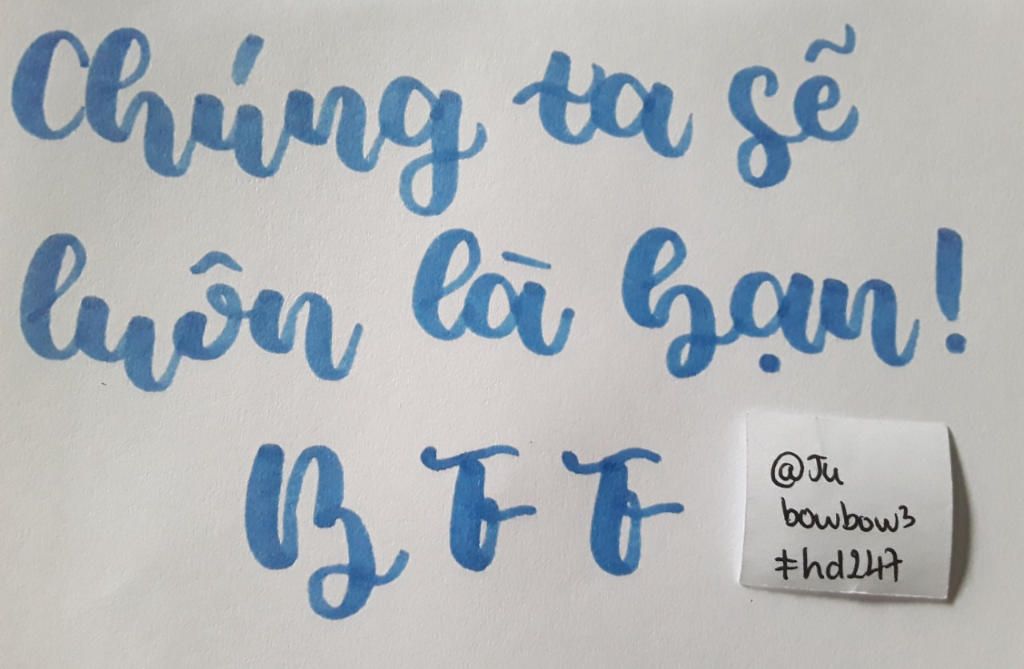 Chúng ta sẽ
luôn là bạn!
B F F
@Ju
bowbow3
#hd247